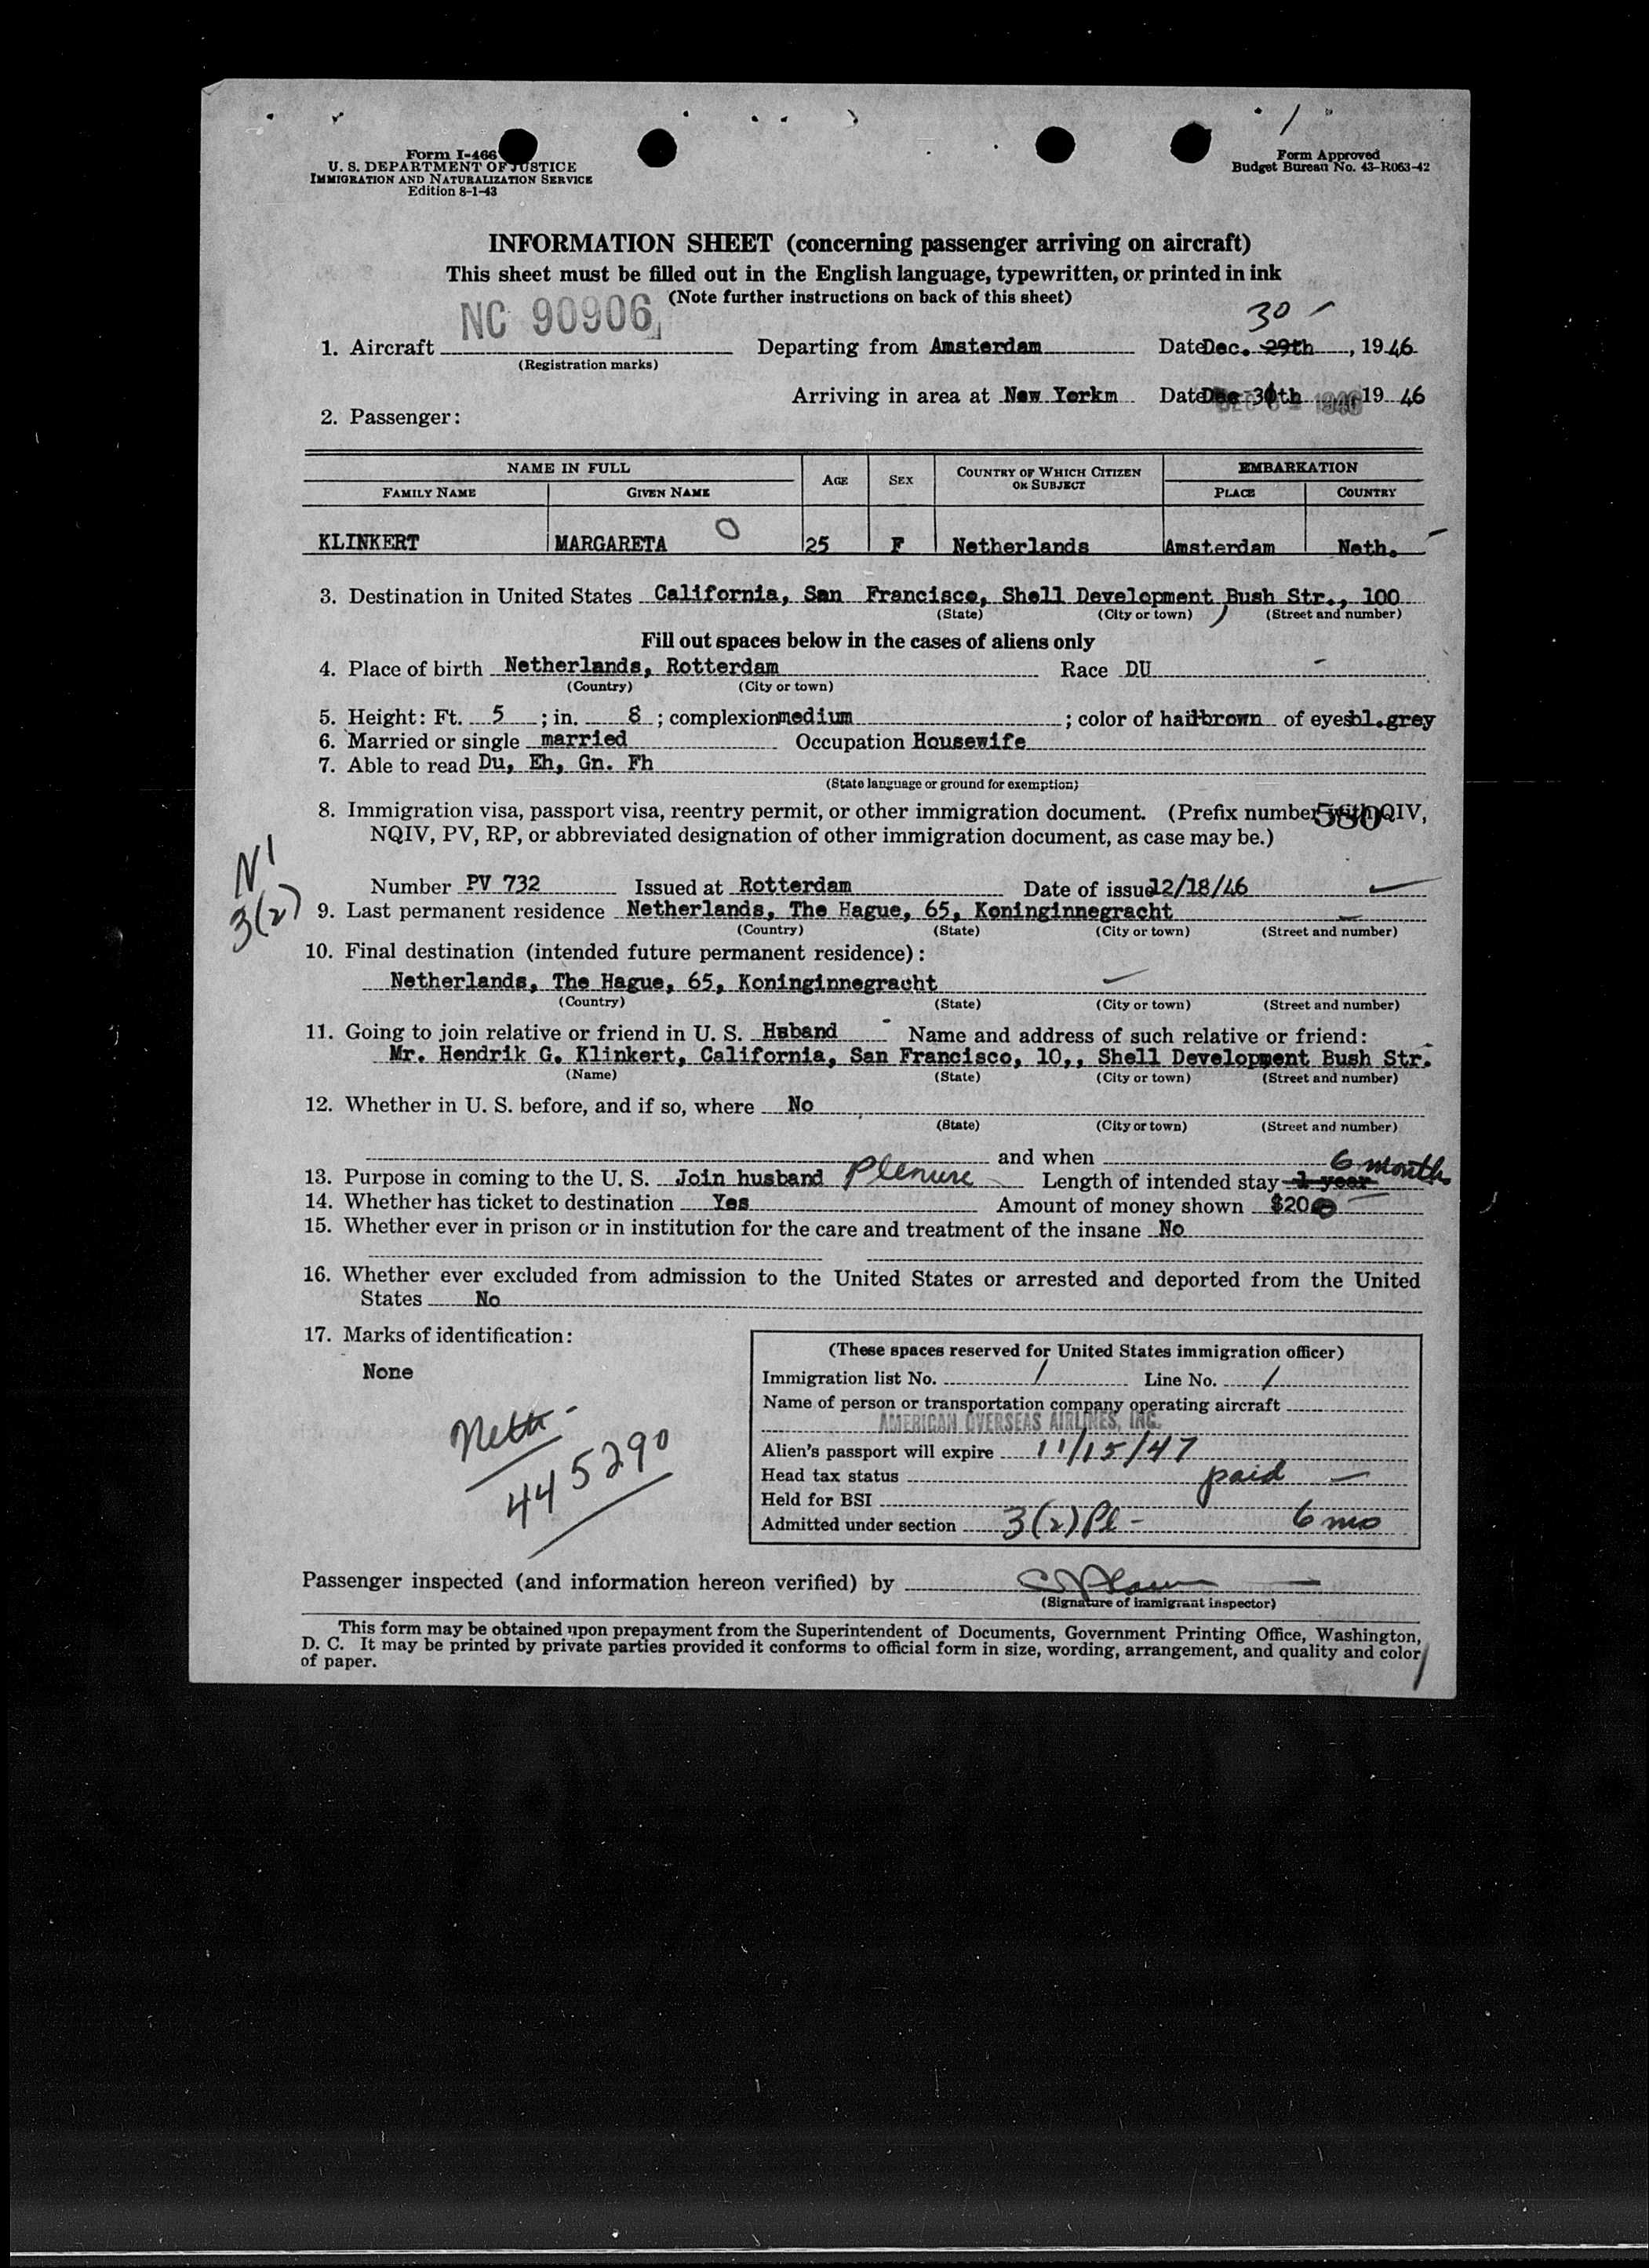 Form I-466
U. S. DEPARTMENT OF JUSTICE
IMMIGRATION AND NATURALIZATION SERVICE
Edition 8-1-43
Form Approved
Budget Bureau No. 43-R063-42
INFORMATION SHEET (concerning passenger arriving on aircraft)
This sheet must be filled out in the English language, typewritten, or printed in ink
(Note further instructions on back of this sheet)
NC 90906
30
1. Aircraft Departing from Amsterdam Date Dec. 29th, 1946
(Registration marks)
Arriving in area at New Yorkm Date 19 46
2. Passenger:
NAME IN FULL AGE SEX COUNTRY OF WHICH CITIZEN OR SUBJECT EMBARKATION
FAMILY NAME GIVEN NAME PLACE COUNTRY
KLINKERT MARGARETA 0 25 F Netherlands Amsterdam Neth.
3. Destination in United States California, San Francisco, Shell Development Bush Str., 100
(State) (City or town) (Street and number)
Fill out spaces below in the cases of aliens only
4. Place of birth Netherlands, Rotterdam Race DU
(Country) (City or town)
5. Height: Ft. 5 ; in. 8 ; complexion medium ; color of hair brown of eyes bl.grey
6. Married or single married Occupation Housewife
7. Able to read Du, Eh, Gn. Fh
(State language or ground for exemption)
8. Immigration visa, passport visa, reentry permit, or other immigration document. (Prefix number with QIV,
580
NQIV, PV, RP, or abbreviated designation of other immigration document, as case may be.)
N1
3(2)
Number PV 732 Issued at Rotterdam Date of issue 12/18/46
9. Last permanent residence Netherlands, The Hague, 65, Koninginnegracht
(Country) (State) (City or town) (Street and number)
10. Final destination (intended future permanent residence):
Netherlands, The Hague, 65, Koninginnegracht
(Country) (State) (City or town) (Street and number)
11. Going to join relative or friend in U. S. Hsband Name and address of such relative or friend:
Mr. Hendrik G. Klinkert, California, San Francisco, 10,, Shell Development Bush Str.
(Name) (State) (City or town) (Street and number)
12. Whether in U. S. before, and if so, where No
(State) (City or town) (Street and number)
and when
13. Purpose in coming to the U. S. Join husband Length of intended stay 1 year 6 months
14. Whether has ticket to destination Yes Amount of money shown $20
15. Whether ever in prison or in institution for the care and treatment of the insane No
16. Whether ever excluded from admission to the United States or arrested and deported from the United
States No
17. Marks of identification:
None
Neth-
445290
(These spaces reserved for United States immigration officer)
Immigration list No. 1 Line No. 1
Name of person or transportation company operating aircraft
AMERICAN OVERSEAS AIRLINES, INC.
Alien's passport will expire 11/15/47
Head tax status paid
Held for BSI
Admitted under section 3(2) Pl - 6 mo
Passenger inspected (and information hereon verified) by
(Signature of immigrant inspector)
This form may be obtained upon prepayment from the Superintendent of Documents, Government Printing Office, Washington,
D. C. It may be printed by private parties provided it conforms to official form in size, wording, arrangement, and quality and color
of paper.